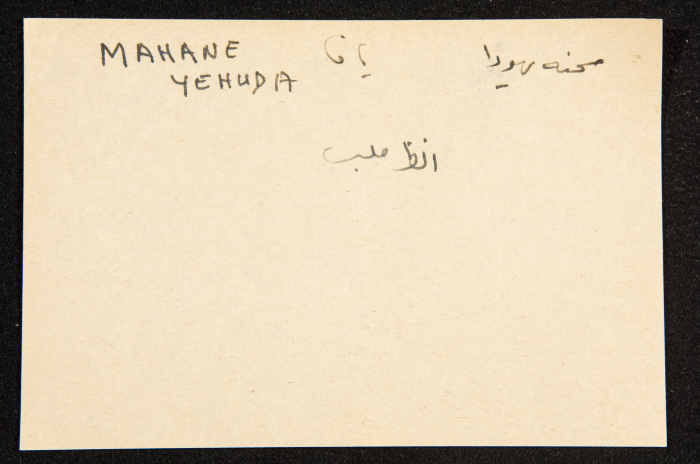 MAHANE YEHUDA
يافا
محنه يهودا
انظر ملبس